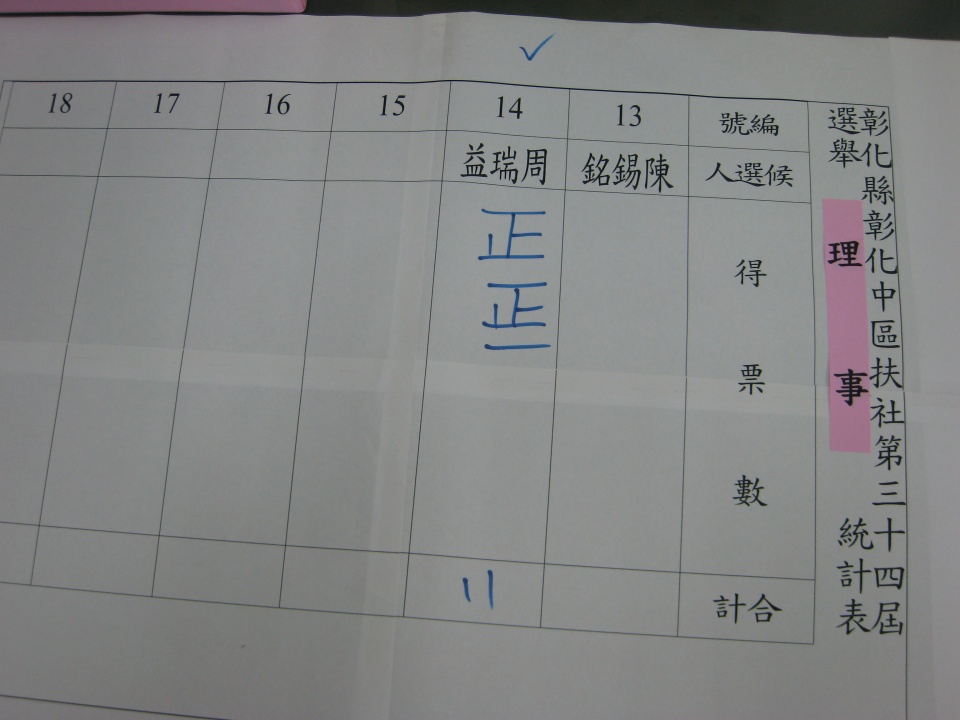 彰化縣彰化中區扶社第三十四屆
選舉 理事 統計表
編號 13 14 15 16 17 18
候選人 陳錫銘 周瑞益
得票數 正正一
合計 11